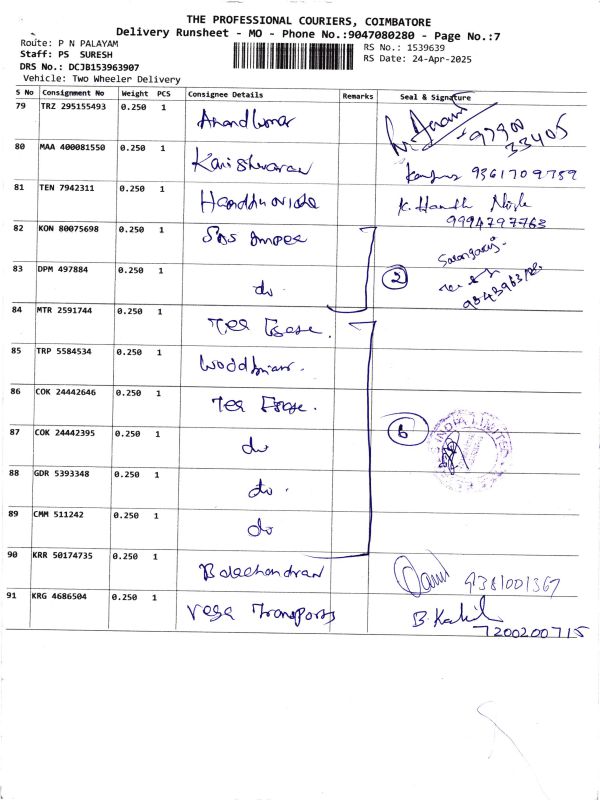 THE PROFESSIONAL COURIERS, COIMBATORE
Delivery Runsheet - MO - Phone No.:9047080280 - Page No.:7
Route: P N PALAYAM
RS No.: 1539639
Staff: PS SURESH
RS Date: 24-Apr-2025
DRS No.: DCJB153963907
Vehicle: Two Wheeler Delivery
S No Consignment No Weight PCS Consignee Details Remarks Seal & Signature
79 TRZ 295155493 0.250 1 Anandkumar 97900 33405
80 MAA 400081550 0.250 1 9361709759
81 TEN 7942311 0.250 1 K. Nivde 9994797763
82 KON 80075698 0.250 1
83 DPM 497884 0.250 1 do 2
84 MTR 2591744 0.250 1
85 TRP 5584534 0.250 1
86 COK 24442646 0.250 1
87 COK 24442395 0.250 1 do 6 INDIA LIMITED
88 GDR 5393348 0.250 1 do
89 CMM 511242 0.250 1 do
90 KRR 50174735 0.250 1 Balachandran 9381001367
91 KRG 4686504 0.250 1 Vega Transports B. 7200200715